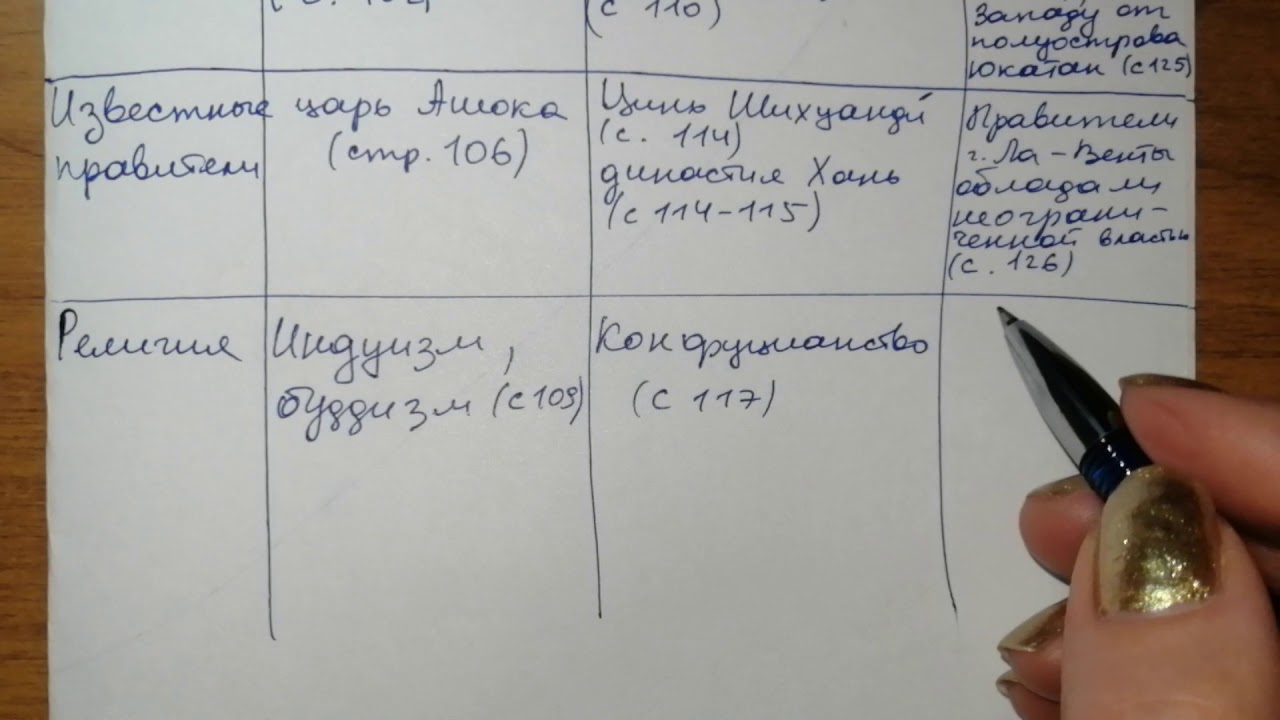 (с 110)
Западу от
полуострова
Юкатан (с125)
Известные
правители
царь Ашока
(стр. 106)
Цинь Шихуанди
(с. 114)
династия Хань
(с 114-115)
Правители
г. Ла-Венты
обладали
неограни-
ченной властью
(с. 126)
Религия
Индуизм,
буддизм (с 109)
Конфуцианство
(с 117)